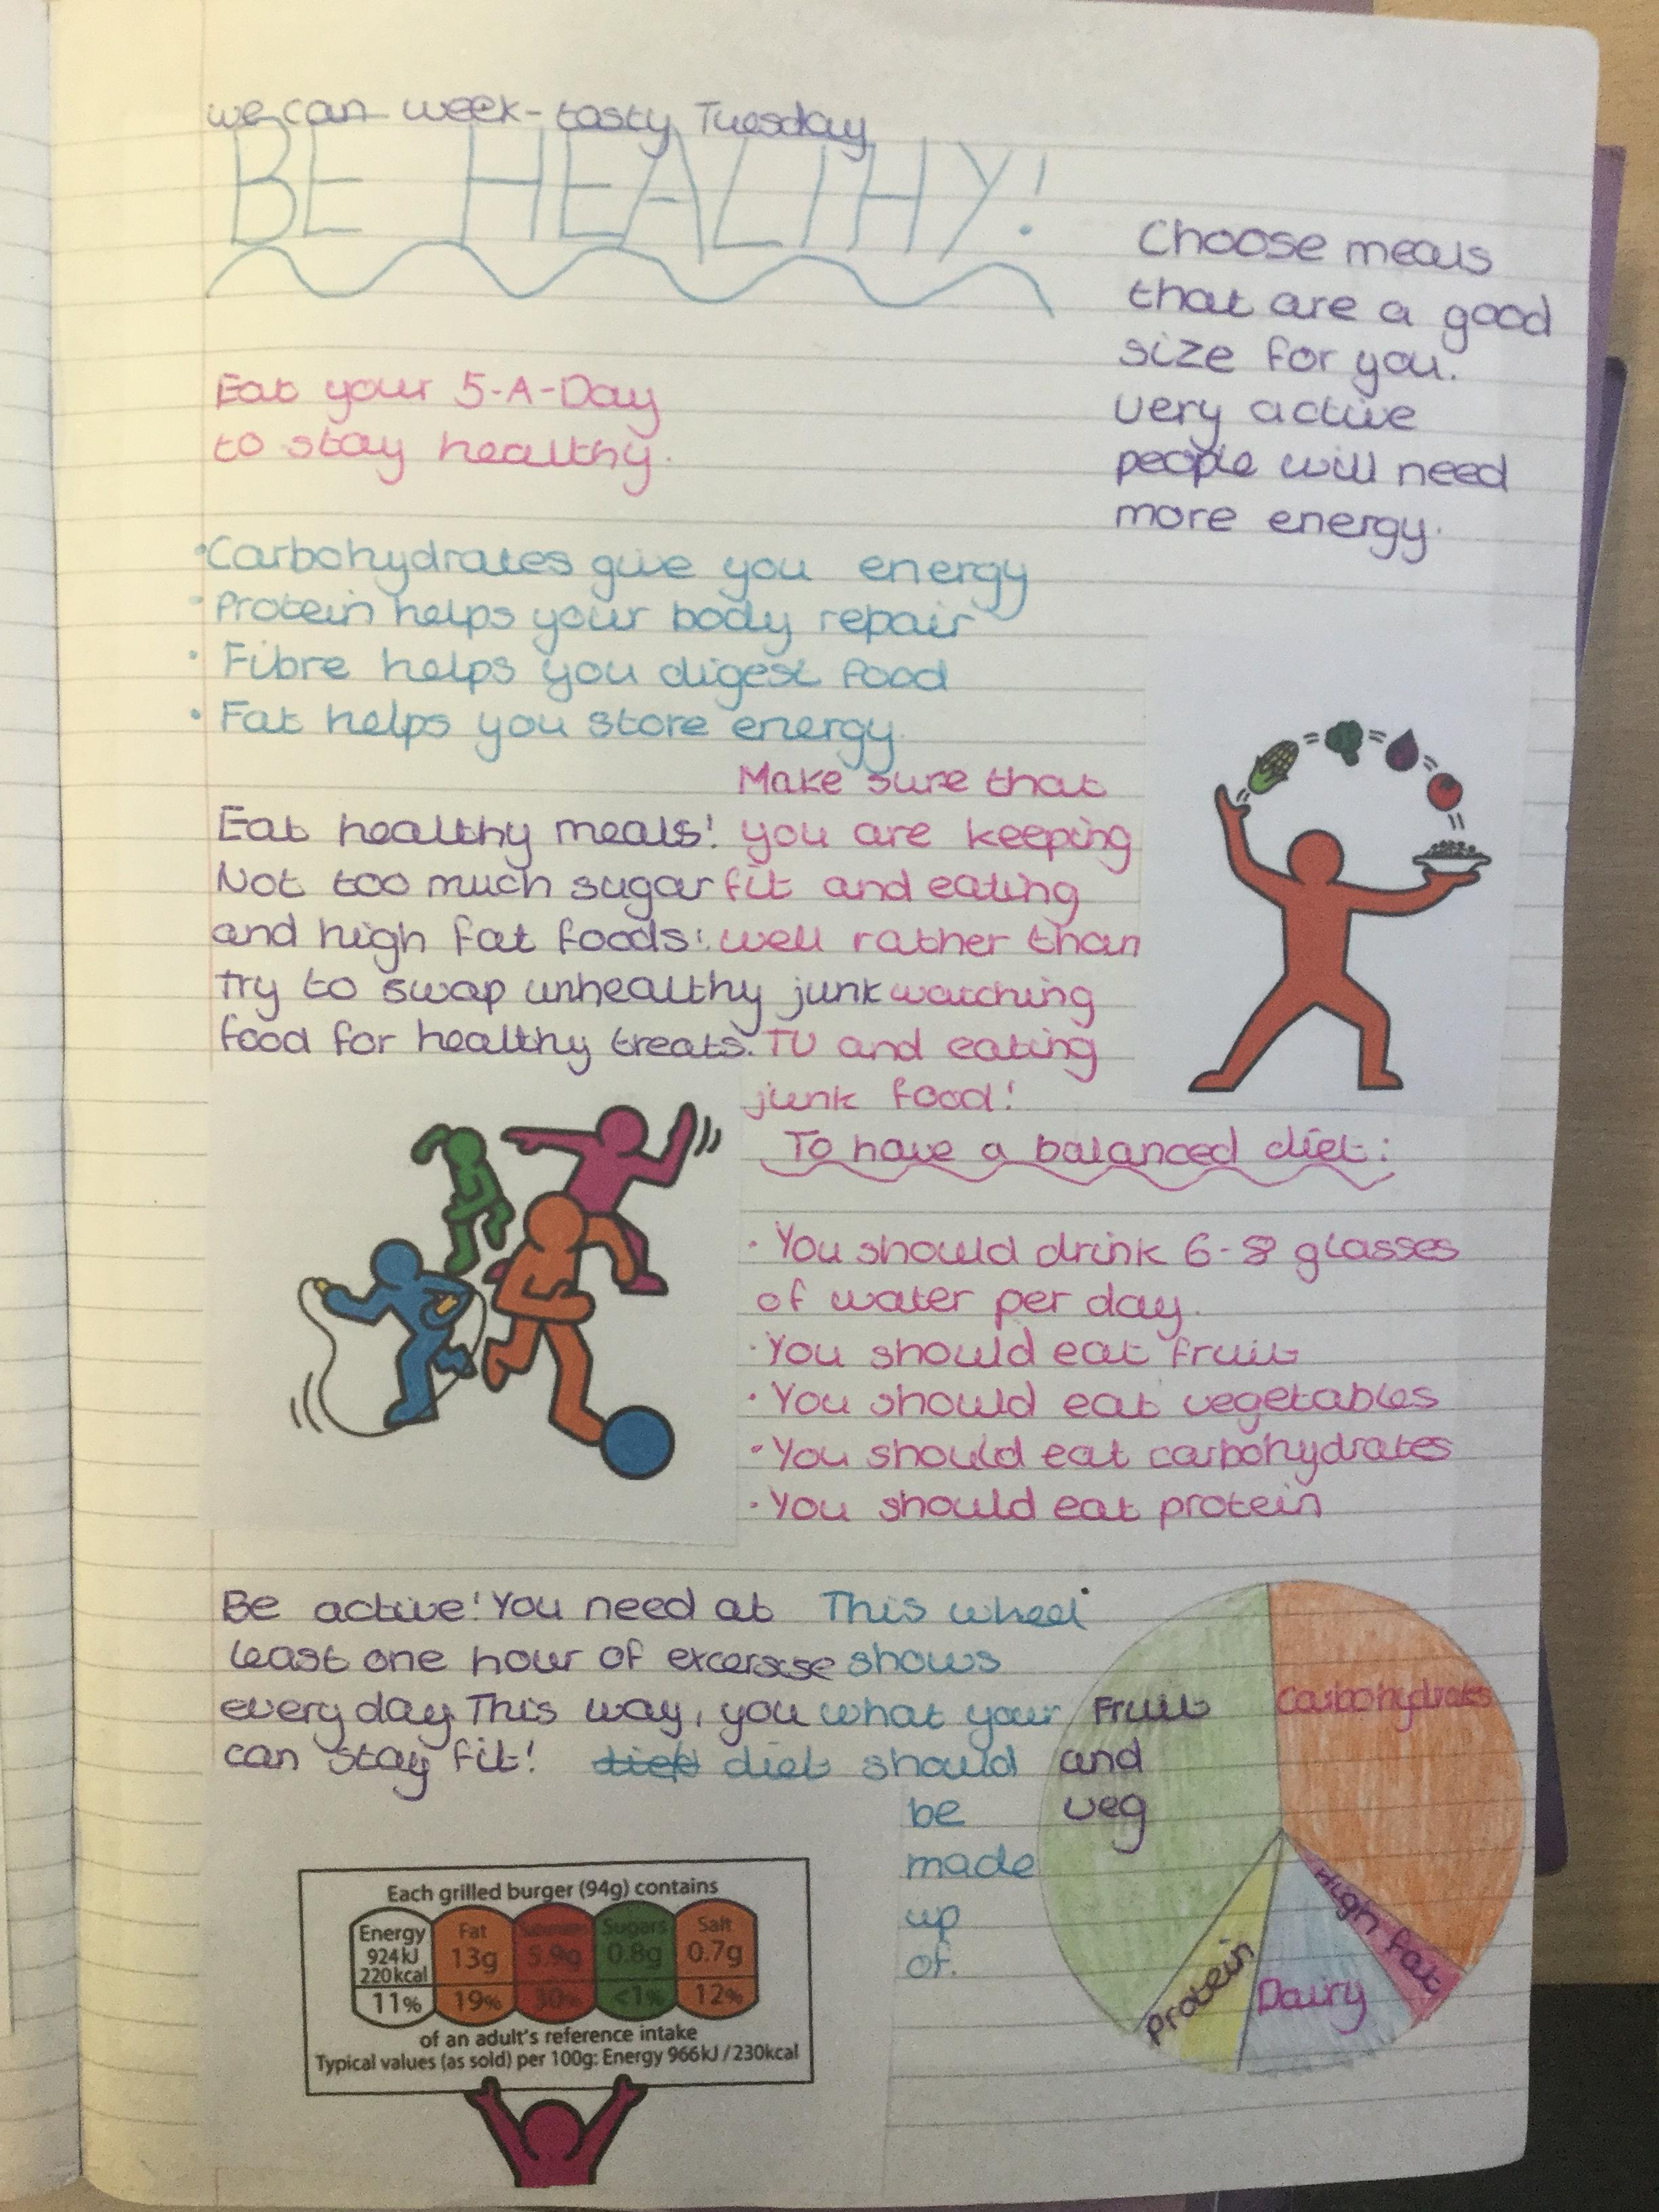 we can week - tasty Tuesday
BE HEALTHY!
Choose meals
that are a good
size for you.
Very active
people will need
more energy.
Eat your 5-A-Day
to stay healthy.
•Carbohydrates give you energy
•Protein helps your body repair
•Fibre helps you digest food
•Fat helps you store energy.
Eat healthy meals!
Not too much sugar
and high fat foods:
try to swap unhealthy junk
food for healthy treats.
Make sure that
you are keeping
fit and eating
well rather than
watching
TV and eating
junk food!
To have a balanced diet:
•You should drink 6-8 glasses
of water per day.
•You should eat fruit
•You should eat vegetables
•You should eat carbohydrates
•You should eat protein
Be active! You need at
least one hour of excersise
every day. This way, you
can stay fit!
This wheel
shows
what your
diet should
be
made
up
of.
Fruit
and
veg
Carbohydrates
High fat
Dairy
Protein
Each grilled burger (94g) contains
Energy
924kJ
220kcal
11%
Fat
13g
19%
5.9g
30%
Sugars
0.8g
<1%
Salt
0.7g
12%
of an adult's reference intake
Typical values (as sold) per 100g: Energy 966kJ / 230kcal